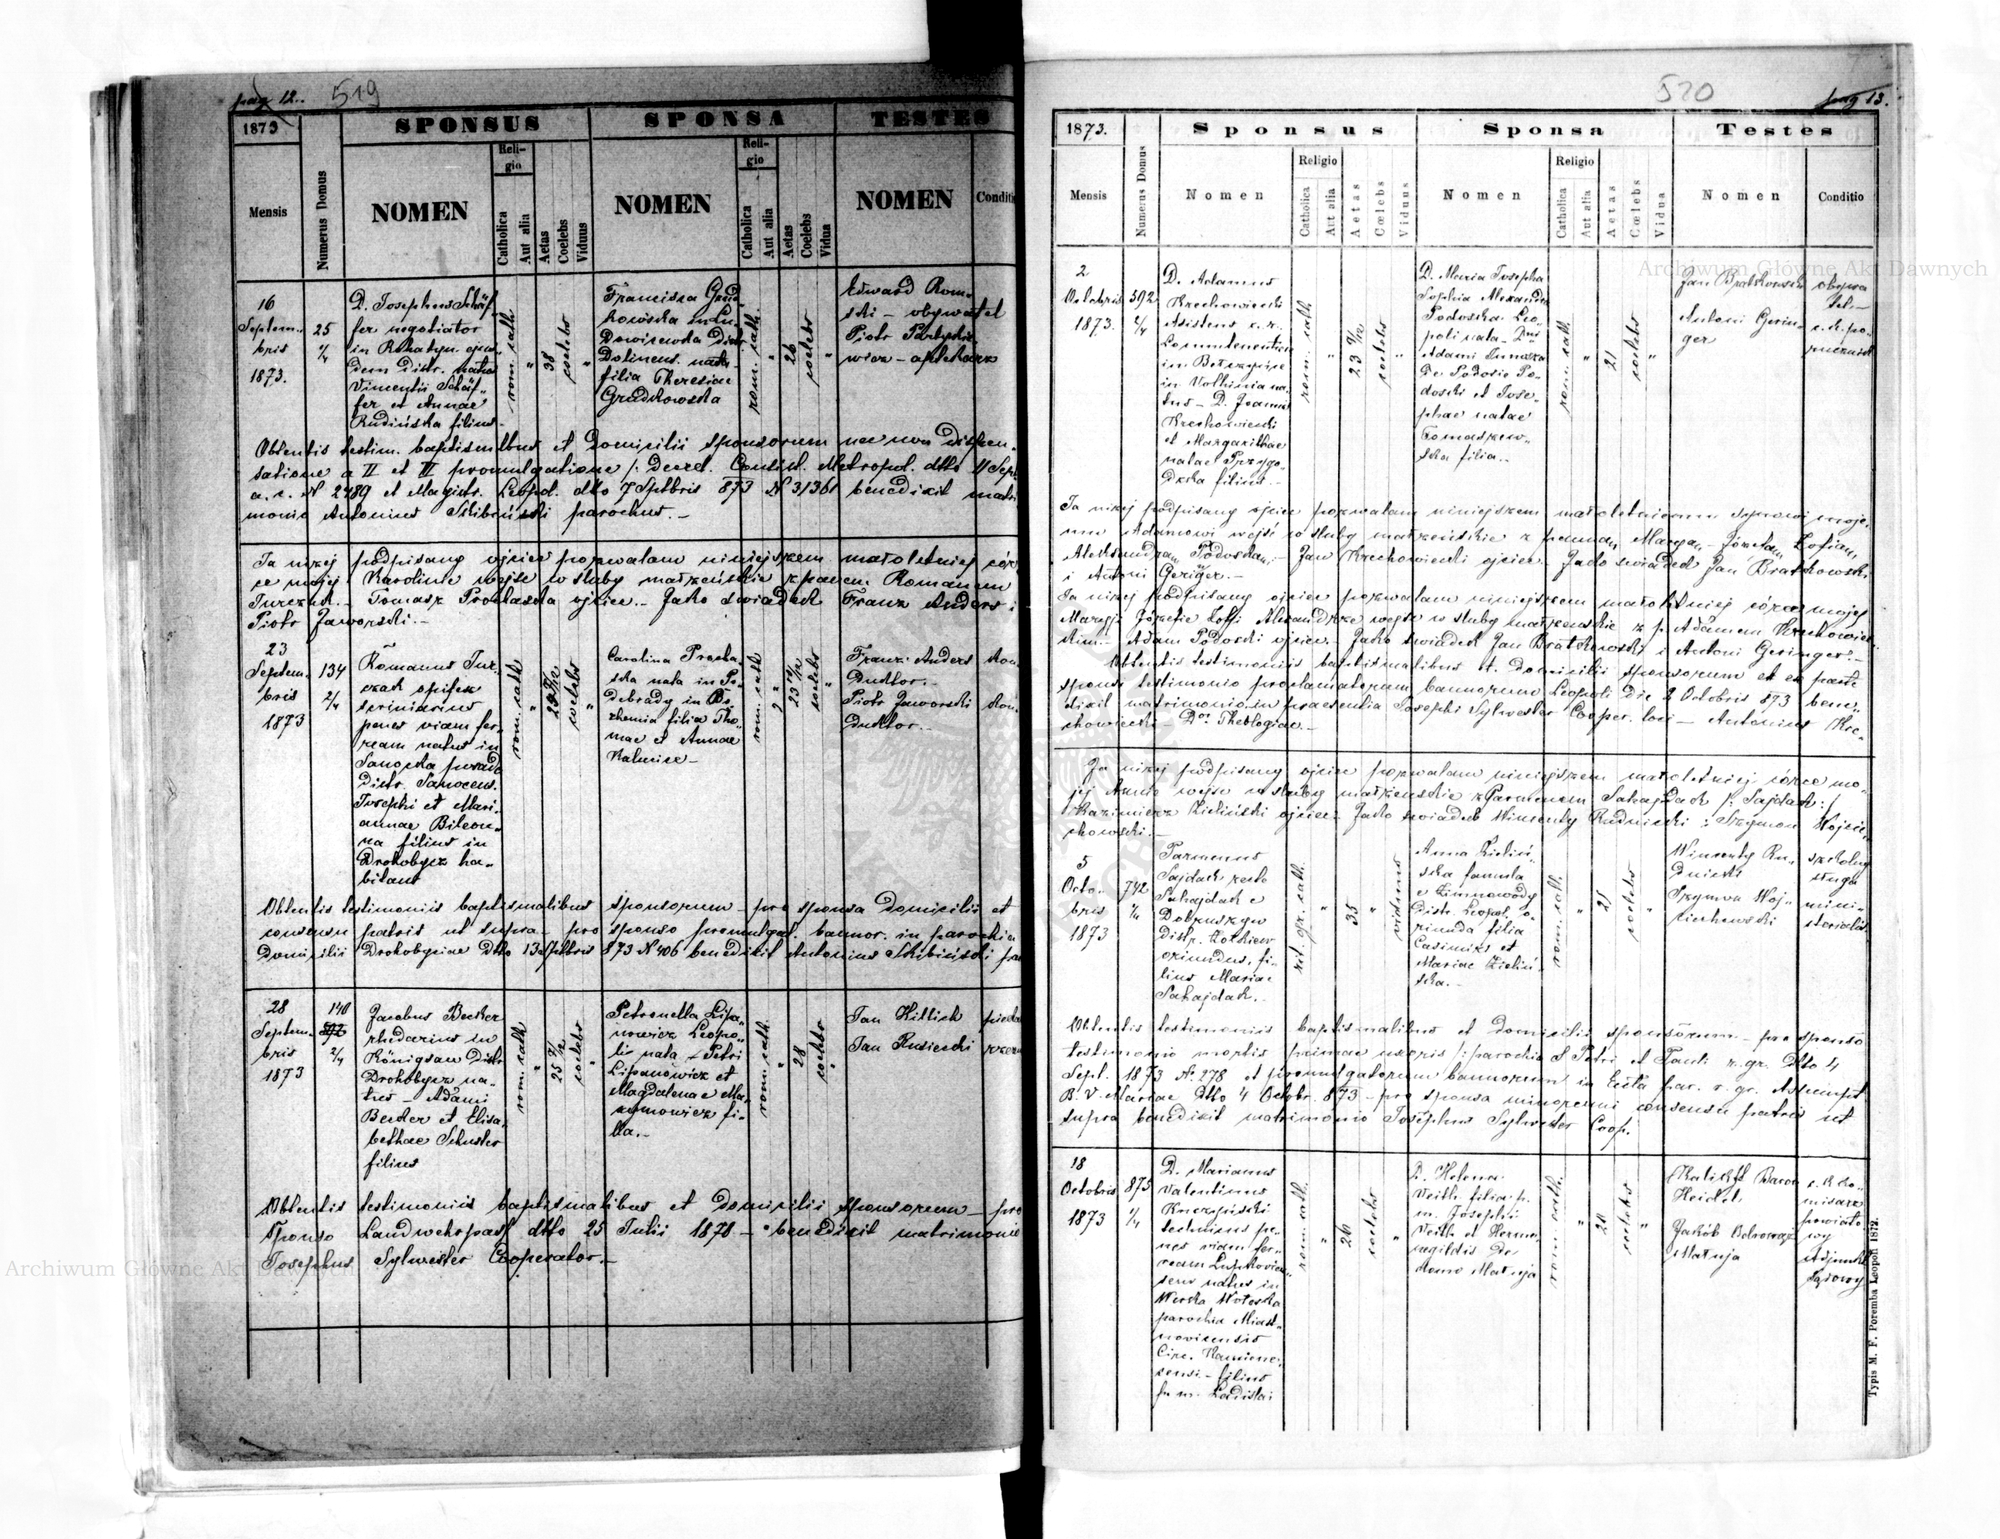 pag 12.
519
1873
SPONSUS
SPONSA
TESTES
Mensis
Numerus Domus
NOMEN
Religio
Catholica
Aut alia
Aetas
Coelebs
Viduus
NOMEN
Religio
Catholica
Aut alia
Aetas
Coelebs
Vidua
NOMEN
Conditi
16
Septem-
bris
1873.
25
1/4
D. Josephus Schäf-
fer negotiator
in Rohatyn ejus-
dem Distr. natus
Vincentii Schäf-
fer et Annae
Rudińska filius
rom. cath.
"
38
coelebs
"
Francisca Grud-
kowska in Lu-
Dolinens. nata
filia Theresiae
Grudkowska
rom. cath.
"
26
coelebs
"
Edward Rom-
ski – obywatel
Piotr
wicz – aptekarz
Obtentis testim. baptismalibus et Domicilii sponsorum nec non dispen-
satione a II et III promulgatione /: decret. Consist. Metropol. dtto 11 Sept
a. c. N 2489 et Magistr. Leopol. dtto 7 Septbris 873 N 31361 benedixit matri
monio Antonius Skibiński parochus. –
Ja niżej podpisany ojciec pozwalam niniejszem małoletniej cór
ce mojej Karolinie wejść w śluby małżeńskie z panem Romanem
Turczak. – Tomasz Prochaska ojciec. – Jako świadek Franz Anders i
Piotr Jaworski. –
23
Septem-
bris
1873
134
2/4
Romanus Tur-
czak opifex
scriniarius
penes viam fer-
ream natus in
Sanocka posada
Distr. Sanocens.
Josephi et Mari-
annae Bilcon-
na filius in
Drohobycz ha-
bitans
rom. cath
"
coelebs
"
Carolina Procha-
ska nata in Po-
debrady in Bo-
hemia filia Tho-
mae et Annae
rom. cath
"
coelebs
"
Franz Anders kon-
duktor. –
Piotr Jaworski kon-
duktor. –
Obtentis testimoniis baptismalibus sponsorum – pro sponsa Domicilii et
consensu patris ut supra – pro sponso promulgat. bannor. in parochia
Domicilii Drohobyciae dtto 13 Septbris 873 N 406 benedixit Antonius Skibiński pa
28
Septem-
bris
1873
140
2/4
Jacobus Becker
rhedarius in
Königsau Distr.
Drohobycz na-
tus – Adami
Becker et Elisa-
bethae Schuster
filius
rom. cath
"
coelebs
"
Petronella Lipa-
nowicz Leopo-
li nata – Petri
Lipanowicz et
Magdalenae Ma-
xymowicz fi-
lia. –
rom. cath.
"
28
coelebs
"
Jan Hittich
Jan Rusiecki
Obtentis testimoniis baptismalibus et Domicilii sponsorum – pro
sponso Landwehrpass dtto 25 Julii 1878 – benedixit matrimonio
Josephus Sylwester Cooperator. –
520
pag 13.
1873.
Sponsus
Sponsa
Testes
Mensis
Numerus Domus
Nomen
Religio
Catholica
Aut alia
Aetas
Cœlebs
Viduus
Nomen
Religio
Catholica
Aut alia
Aetas
Cœlebs
Vidua
Nomen
Conditio
2
Octobris
1873.
592
2/4
D. Adamus
Krechowiecki
Asistens c. r.
Locumtenentiae
in
in Volhinia na-
tus – D. Joannis
Krechowiecki
et Margarithae
natae Przygo-
dzka filius. –
rom. cath.
"
coelebs
"
D. Maria Josepha
Sophia Alexandra
Podoska Leo-
poli nata – Dni
Adami
De Podosie Po-
doski et Jose-
phae natae
Tomaszew-
ska filia. –
rom. cath.
"
21
coelebs
"
Jan Bratkowski
obywa
tel –
Antoni Gerin-
ger
c. k. po-
rucznik
Ja niżej podpisany ojciec pozwalam niniejszem małoletniemu synowi moje-
mu Adamowi wejść w śluby małżeńskie z panną Maryą – Józefą Zofią
Aleksandrą Podoską. – Jan Krechowiecki ojciec. Jako świadek Jan Bratkowski
i Antoni Geringer. –
Ja niżej podpisany ojciec pozwalam niniejszem małoletniej córce mojej
Maryi Józefie Zofii Alexandrze wejść w śluby małżeńskie z p. Adamem Krechowiec-
kim. – Adam Podoski ojciec – Jako świadek Jan Bratkowski i Antoni Geringer. –
Obtentis testimoniis baptismalibus et Domicilii sponsorum et ex parte
sponsi testimonio proclamatorum bannorum Leopoli die 2 Octobris 873 bene-
dixit matrimonio in praesentia Josephi Sylwester Cooper. loci – Antonius Kre-
chowiecki – Dor Theologiae. –
Ja niżej podpisany ojciec pozwalam niniejszem małoletniej córce mo-
jej Annie wejść w śluby małżeńskie z Parmenem Sahajdak /: Sajdak :/
Kazimierz Zieliński ojciec. Jako świadek Wincenty Rudnicki : Szymon Wojcie-
chowski. –
5
Octo-
bris
1873
742
1/4
Parmenus
Sajdak recte
Sahajdak e
Distr. Zolkiew
oriundus, fi-
lius Mariae
Sahajdak. –
rit. gr. cath.
"
35
"
viduus
Anna Zieliń-
ska famula
e Zimnawody
Distr. Leopol. o-
riunda filia
Casimiri et
Mariae Zieliń-
ska. –
rom. cath.
"
21
coelebs
"
Wincenty Ru-
dnicki
Szymon Woj-
ciechowski
szkolny
sługa
mini-
sterialis
Obtentis testimoniis baptismalibus et Domicilii sponsorum – pro sponso
testimonio mortis primae uxoris /: parochia S. Petri et Pauli r. gr. dtto 4
Sept. 1873 N. 278 et promulgatorum bannorum in Eccla par. r. gr. Assumpt
B. V. Mariae dtto 4 Octobr. 873 – pro sponsa minorenni consensu patris ut
supra benedixit matrimonio Josephus Sylwester Coop.
18
Octobris
1873
875
1/4
D. Marianus
Valentinus
Knezpiński
technicus pe-
nes viam fer-
ream Lupkovien-
sem natus in
Werbka Wołoska
parochia Miast-
kovicensis
Circ. Kamiene-
censi – filius
p. m. Ladislai
rom. cath.
"
26
coelebs
"
D. Helena
Veith filia p.
m. Josephi
Veith et Herme-
negildis De-
domo Matyja
rom. cath.
"
20
coelebs
"
Kalixt Baron
Heidel
Jakób
Matyja
c. k. ko-
misarz
powiato
wy
Adjunkt
sądowy
Typis M. F. Poremba Leopoli 1872.
Archiwum Główne Akt Dawnych
Archiwum Główne Akt Dawnych